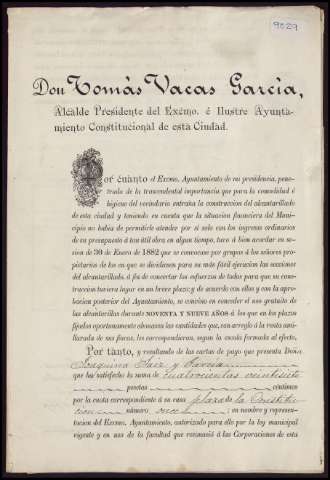 9029
Don Tomás Vacas García,
Alcalde Presidente del Excmo. é Ilustre Ayunta-
miento Constitucional de esta Ciudad.
Por cuánto el Excmo. Ayuntamiento de mi presidencia, pene-
trado de la trascendental importancia que para la comodidad é
higiene del vecindario entraña la construcción del alcantarillado
de esta ciudad y teniendo en cuenta que la situación financiera del Muni-
cipio no había de permitirle atender por sí solo con los ingresos ordinarios
de su presupuesto á tan útil obra en algun tiempo, tuvo á bien acordar en se-
sión de 30 de Enero de 1882 que se convocase por grupos á los señores pro-
pietarios de los en que se dividiesen para su más fácil ejecución las secciones
del alcantarillado, á fin de concertar los esfuerzos de todos para que su cons-
trucción tuviera lugar en un breve plazo; y de acuerdo con ellos y con la
aprobacion posterior del Ayuntamiento, se convino en conceder el uso gratuito de
las alcantarillas durante NOVENTA Y NUEVE AÑOS á los que en los plazos
fijados oportunamente abonasen las cantidades que, con arreglo á la renta ami-
llarada de sus fincas, les correspondieran, según la escala formada al efecto.
Por tanto, y resultando de las cartas de pago que presenta Doña
Joaquina Saiz y García
que ha satisfecho la suma de cuatrocientas veintisiete
pesetas céntimos
por la cuota correspondiente á su casa plaza de la Constitu-
cion número once; en nombre y represen-
tacion del Excmo. Ayuntamiento, autorizado para ello por la ley municipal
vigente y en uso de la facultad que reconoció á las Corporaciones de esta